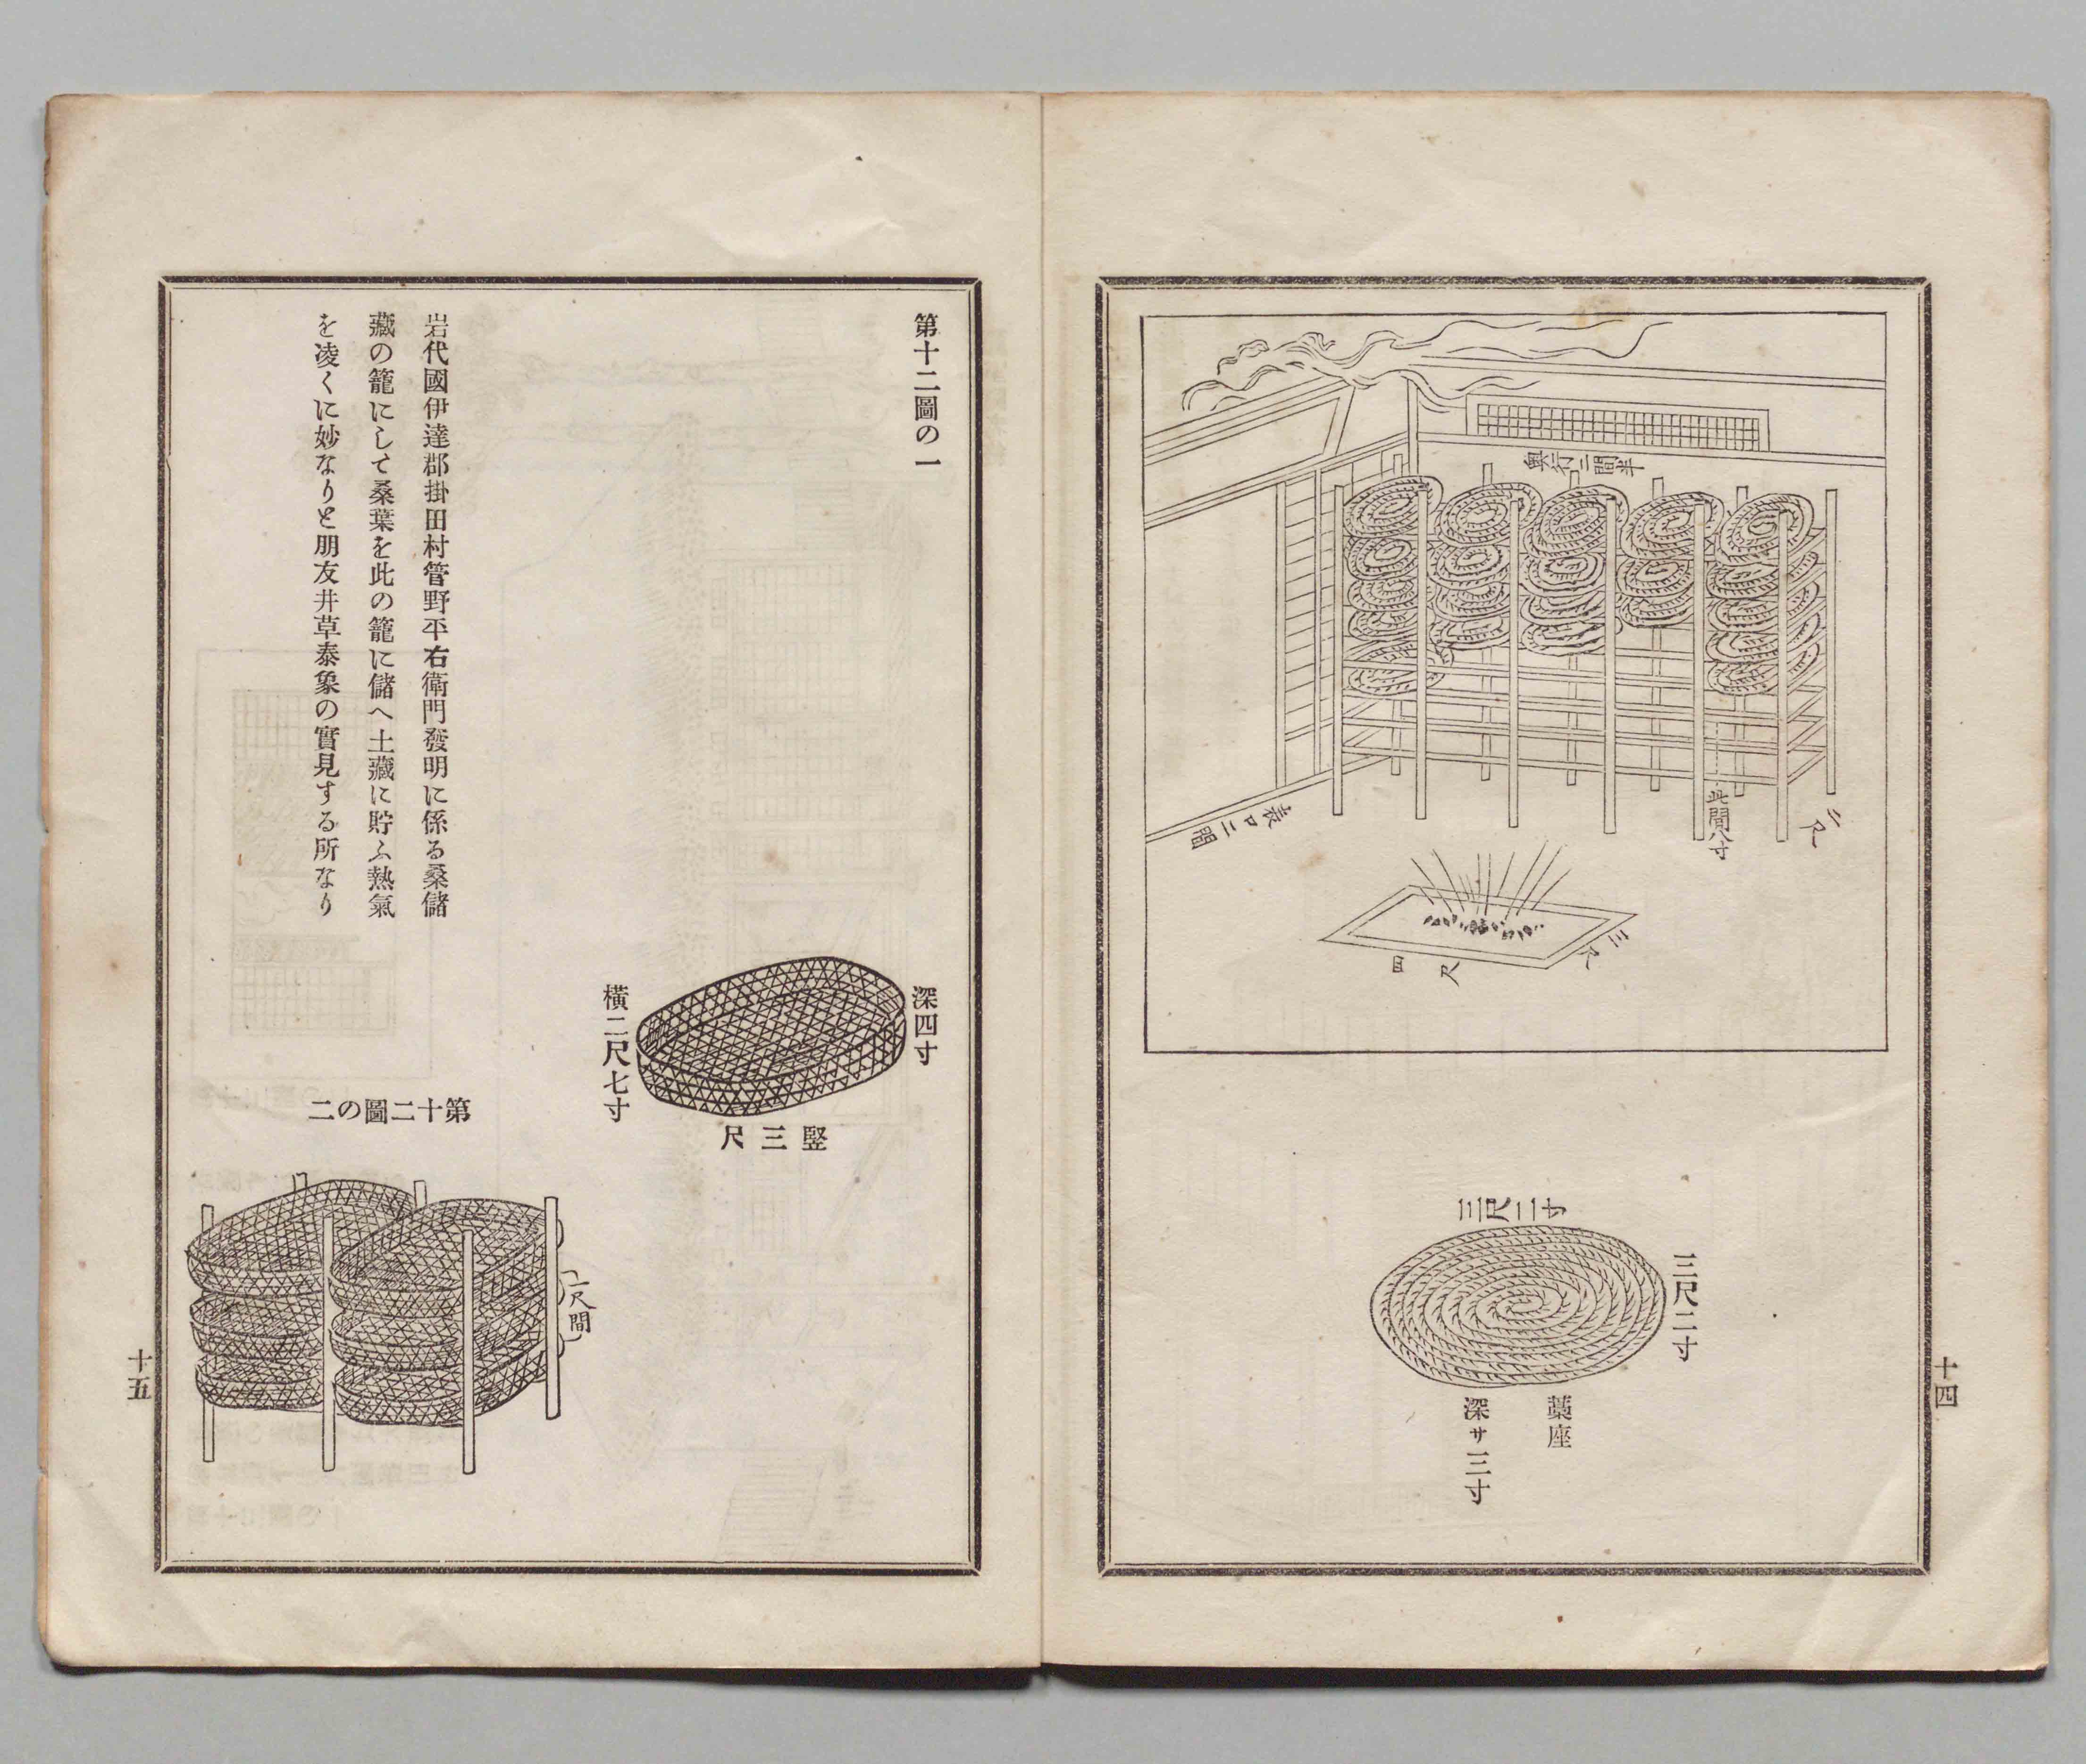 奥行二間半
表口二間
此間八寸
二尺
三尺
四尺
三尺二寸
三尺二寸
藁座
深サ三寸
十四
第十二圖の一
深四寸
竪三尺
横二尺七寸
岩代國伊達郡掛田村管野平右衛門發明に係る桑儲
藏の籠にして桑葉を此の籠に儲へ土藏に貯ふ熱氣
を凌くに妙なりと朋友井草泰象の實見する所なり
第十二圖の二
一尺間
十五